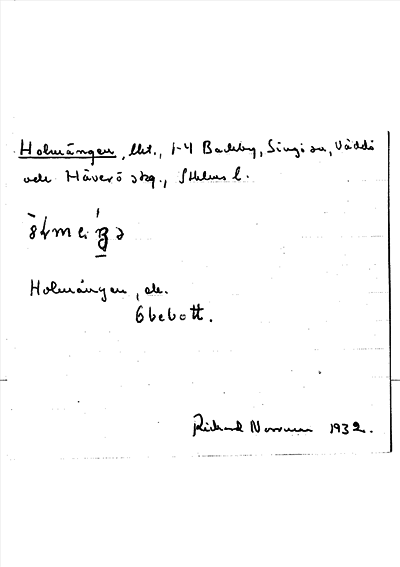 Holmängen, lht., 1-4 Backby, Singö sn, Väddö
och Häverö skg., Sthlms l.
Holmängen, ob.
Obebott.
Rickard Norrman 1932.